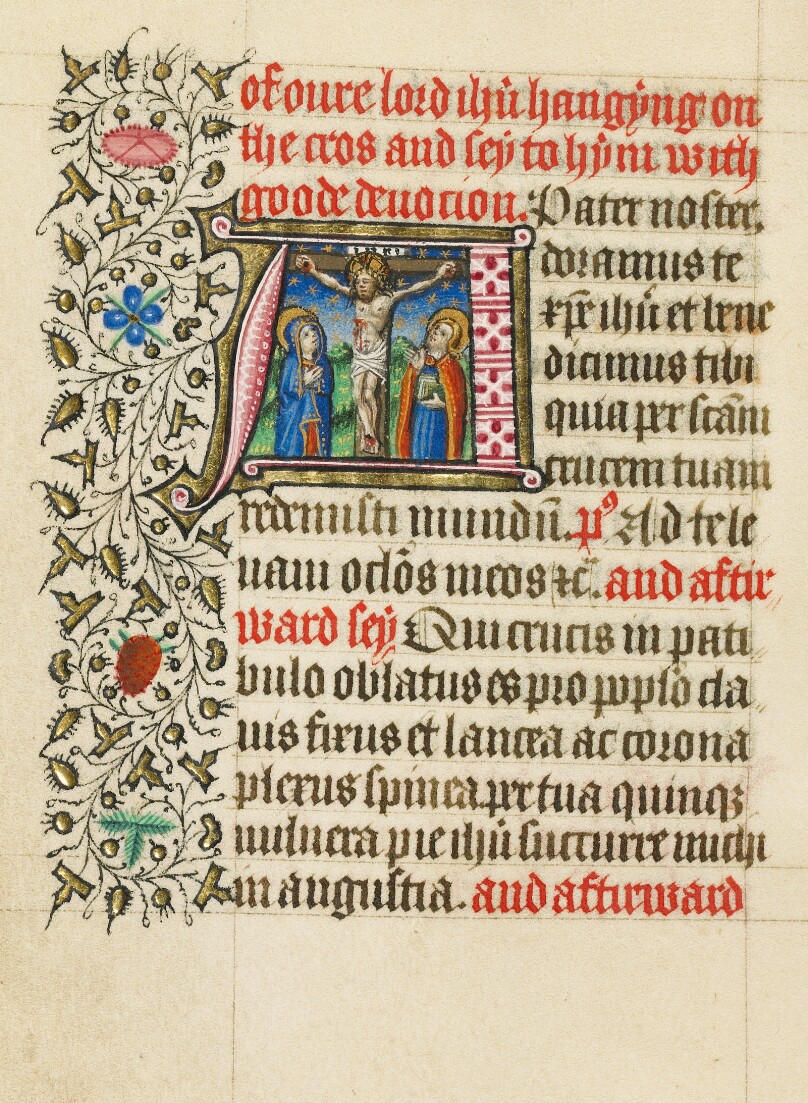 of oure lord ihū hangẏng on
the cros and seẏ to hẏm with
goode deuocion. Pater noster.
Adoramus te
xp̄e ihū et bene
dicimus tibi
quia per scām
crucem tuam
redemisti mundū. p⁹ Ad te le
uaui oclōs meos ⁊c̄. and aftir
ward seẏ Qui crucis in pati
bulo oblatus es pro pōplo cla
uis fixus et lancea ac corona
plexus spinea. per tua quinqꝫ
uulnera pie ihū succurre michi
in angustia. and aftirward